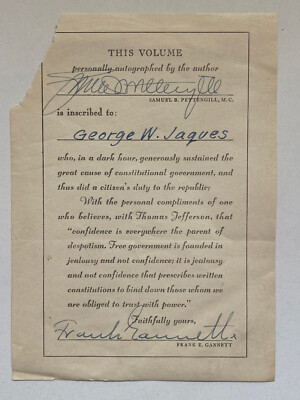 THIS VOLUME
personally autographed by the author
SAMUEL B. PETTENGILL, M.C.
is inscribed to:
George W. Jaques
who, in a dark hour, generously sustained the
great cause of constitutional government, and
thus did a citizen's duty to the republic;
With the personal compliments of one
who believes, with Thomas Jefferson, that
"confidence is everywhere the parent of
despotism. Free government is founded in
jealousy and not confidence; it is jealousy
and not confidence that prescribes written
constitutions to bind down those whom we
are obliged to trust with power."
Faithfully yours,
Frank Gannett
FRANK E. GANNETT